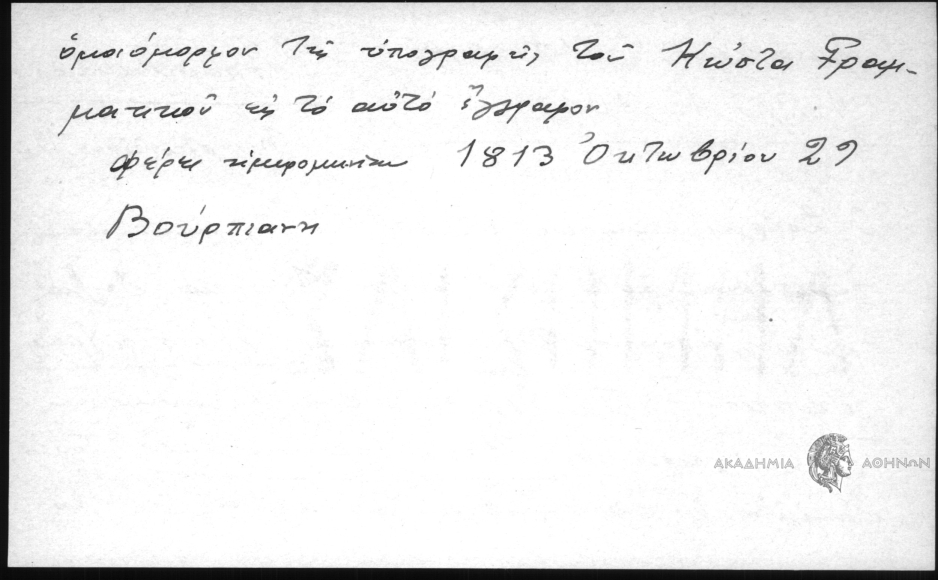 ὁμοιόμορφον τῆς ὑπογραφῆς τοῦ Κώστα Γραμ-
ματικοῦ εἰς τὸ αὐτὸ ἔγγραφον
φέρει ἡμερομηνίαν 1813 Ὀκτωβρίου 29
Βούρπιανη
ΑΚΑΔΗΜΙΑ ΑΘΗΝΩΝ